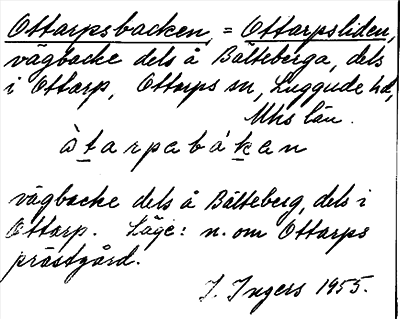 Ottarpsbacken, = Ottarpsliden,
vägbacke dels å Bälteberga, dels
i Ottarp, Ottarps sn, Luggude hd,
Mhs län.
àtarpabákan
vägbacke dels å Bälteberg, dels i
Ottarp. Läge: n. om Ottarps
prästgård.
I. Ingers 1955.